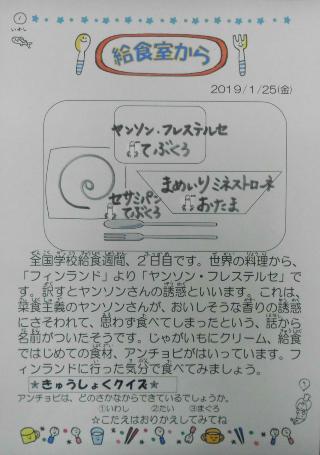 ①
いわし
給食室から
2019/1/25(金)
ヤンソン・フレステルセ
てぶくろ
まめいりミネストローネ
おたま
セサミパン
てぶくろ
全国学校給食週間、2日目です。世界の料理から、
「フィンランド」より「ヤンソン・フレステルセ」で
す。訳すとヤンソンさんの誘惑といいます。これは、
菜食主義のヤンソンさんが、おいしそうな香りの誘惑
にさそわれて、思わず食べてしまったという、話から
名前がついたそうです。じゃがいもにクリーム、給食
ではじめての食材、アンチョビがはいっています。フ
ィンランドに行った気分で食べてみましょう。
★きゅうしょくクイズ★
アンチョビは、どのさかなからできているでしょうか。
①いわし ②たい ③まぐろ
☆こたえはおりかえしてみてね